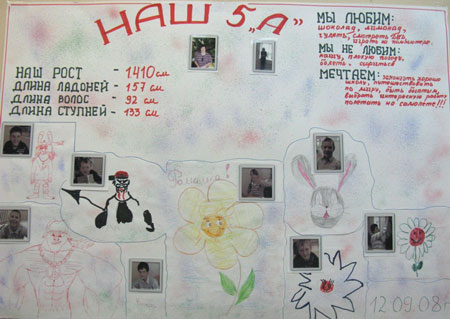 НАШ 5 „А"
НАШ РОСТ - 1410 см
ДЛИНА ЛАДОНЕЙ - 157 см
ДЛИНА ВОЛОС - 92 см
ДЛИНА СТУПНЕЙ - 133 см
МЫ ЛЮБИМ:
шоколад, лимонад,
гулять, смотреть
играть на компьютере.
МЫ НЕ ЛЮБИМ:
кашу, плохую погоду,
болеть, ссориться
МЕЧТАЕМ: закончить хорошо
школу, путешествовать
по миру, быть богатым,
выбрать интересную работу
полетать на самолете!!!
Ромашка!
12.09.08 г